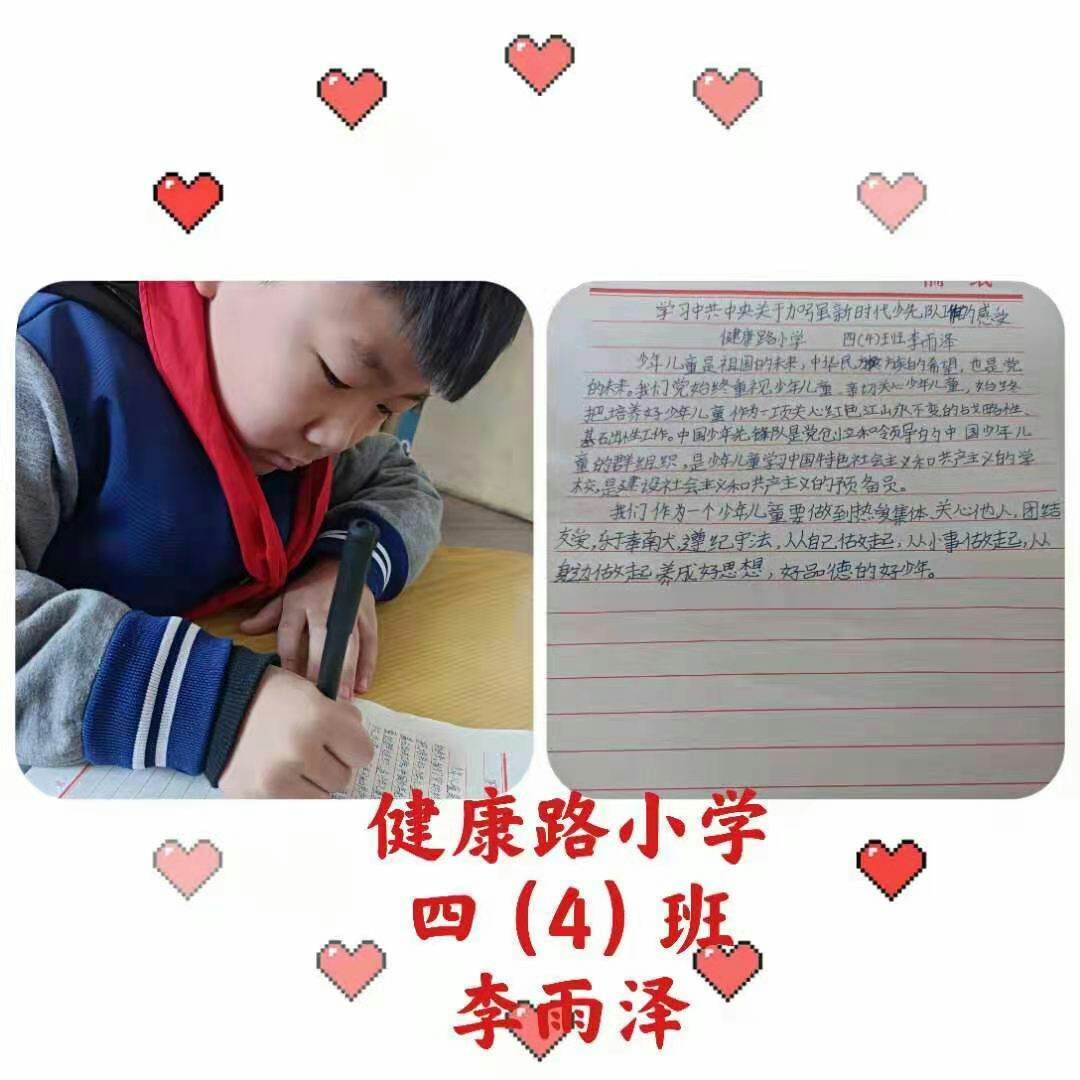 稿 纸
学习中共中央关于加强新时代少先队工作的感受
健康路小学 四(4)班李雨泽
少年儿童是祖国的未来,中华民族的希望,也是党
的未来。我们党始终重视少年儿童、亲切关心少年儿童,始终
把培养好少年儿童作为一项关心红色江山永不变的战略性、
基石出性工作。中国少年先锋队是党创立和领导的中国少年儿
童的群组织,是少年儿童学习中国特色社会主义和共产主义的学
校,是建设社会主义和共产主义的预备员。
我们作为一个少年儿童要做到热爱集体、关心他人,团结
友爱,乐于奉献,遵纪守法,从自己做起,从小事做起,从
身边做起 养成好思想,好品德的好少年。
健康路小学
四(4)班
李雨泽